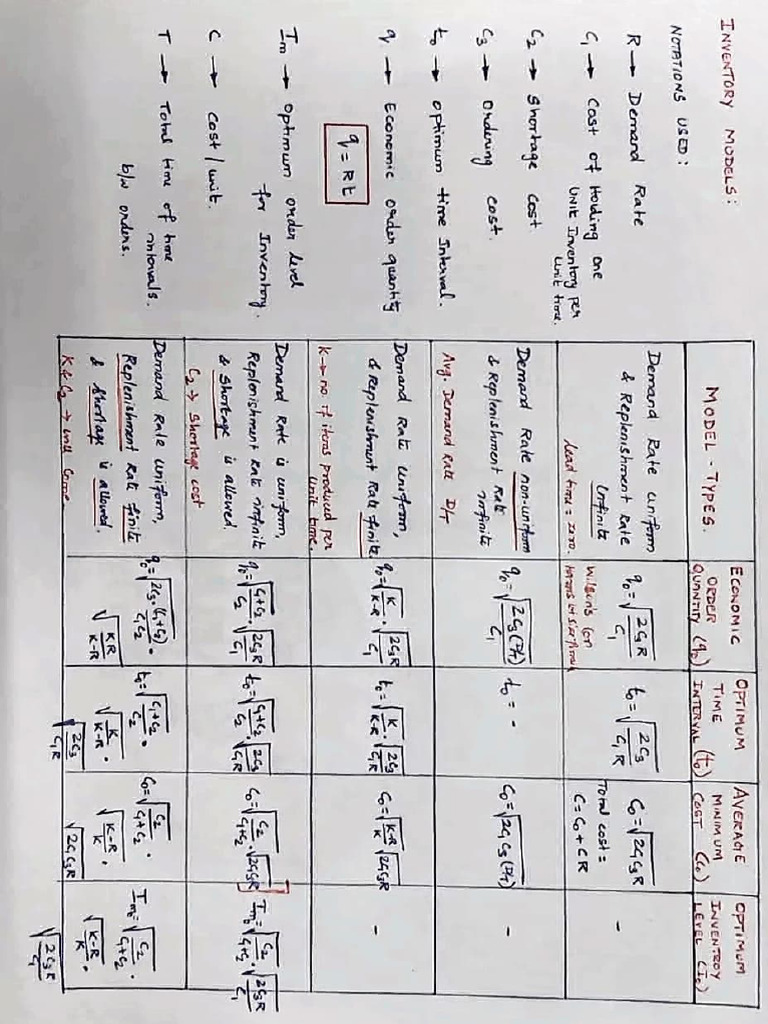 INVENTORY MODELS:
NOTATIONS USED:
R → Demand Rate
C₁ → Cost of Holding one
Unit Inventory per
unit time.
C₂ → Shortage cost.
C₃ → Ordering cost.
t₀ → optimum time Interval.
q → Economic order quantity
q = Rt
Iₘ → optimum order level
for Inventory.
C → cost/unit.
T → Total time of time
intervals.
b/w orders.
MODEL - TYPES.
ECONOMIC
ORDER
QUANTITY (q₀)
OPTIMUM
TIME
INTERVAL (t₀)
AVERAGE
MINIMUM
COST (C₀)
OPTIMUM
INVENTROY
LEVEL (I₀)
Demand Rate uniform
& Replenishment Rate
Infinite
lead time = zero.
q₀ = √(2C₃R/C₁)
t₀ = √(2C₃/C₁R)
C₀ = √(2C₁C₃R)
Total cost =
C = C₀ + CR
-
Demand Rate non-uniform
& Replenishment Rate
infinite
Avg. Demand Rate D/T
q₀ = √(2C₃(D/T)/C₁)
t₀ = -
C₀ = √(2C₁C₃(D/T))
-
Demand Rate uniform,
& Replenishment Rate finite.
K → no. of items produced per
unit time.
q₀ = √(K/K-R) . √(2C₃R/C₁)
t₀ = √(K/K-R) . √(2C₃/C₁R)
C₀ = √(K-R/K) √(2C₁C₃R)
-
Demand Rate is uniform,
Replenishment Rate infinite
& Shortage is allowed.
C₂ → Shortage cost
q₀ = √(C₁+C₂/C₂) . √(2C₃R/C₁)
t₀ = √(C₁+C₂/C₂) . √(2C₃/C₁R)
C₀ = √(C₂/C₁+C₂) . √(2C₁C₃R)
Iₘ₀ = √(C₂/C₁+C₂) . √(2C₃R/C₁)
Demand Rate uniform,
Replenishment Rate finite
& Shortage is allowed.
K & C₂ → will come
q₀ = √(2C₃.(C₁+C₂)/C₁C₂) .
√(KR/K-R)
t₀ = √(C₁+C₂/C₂) .
√(K/K-R) .
√(2C₃/C₁R)
C₀ = √(C₂/C₁+C₂) .
√(K-R/K) .
√(2C₁C₃R)
Iₘ₀ = √(C₂/C₁+C₂) .
√(K-R/K) .
√(2C₃R/C₁)